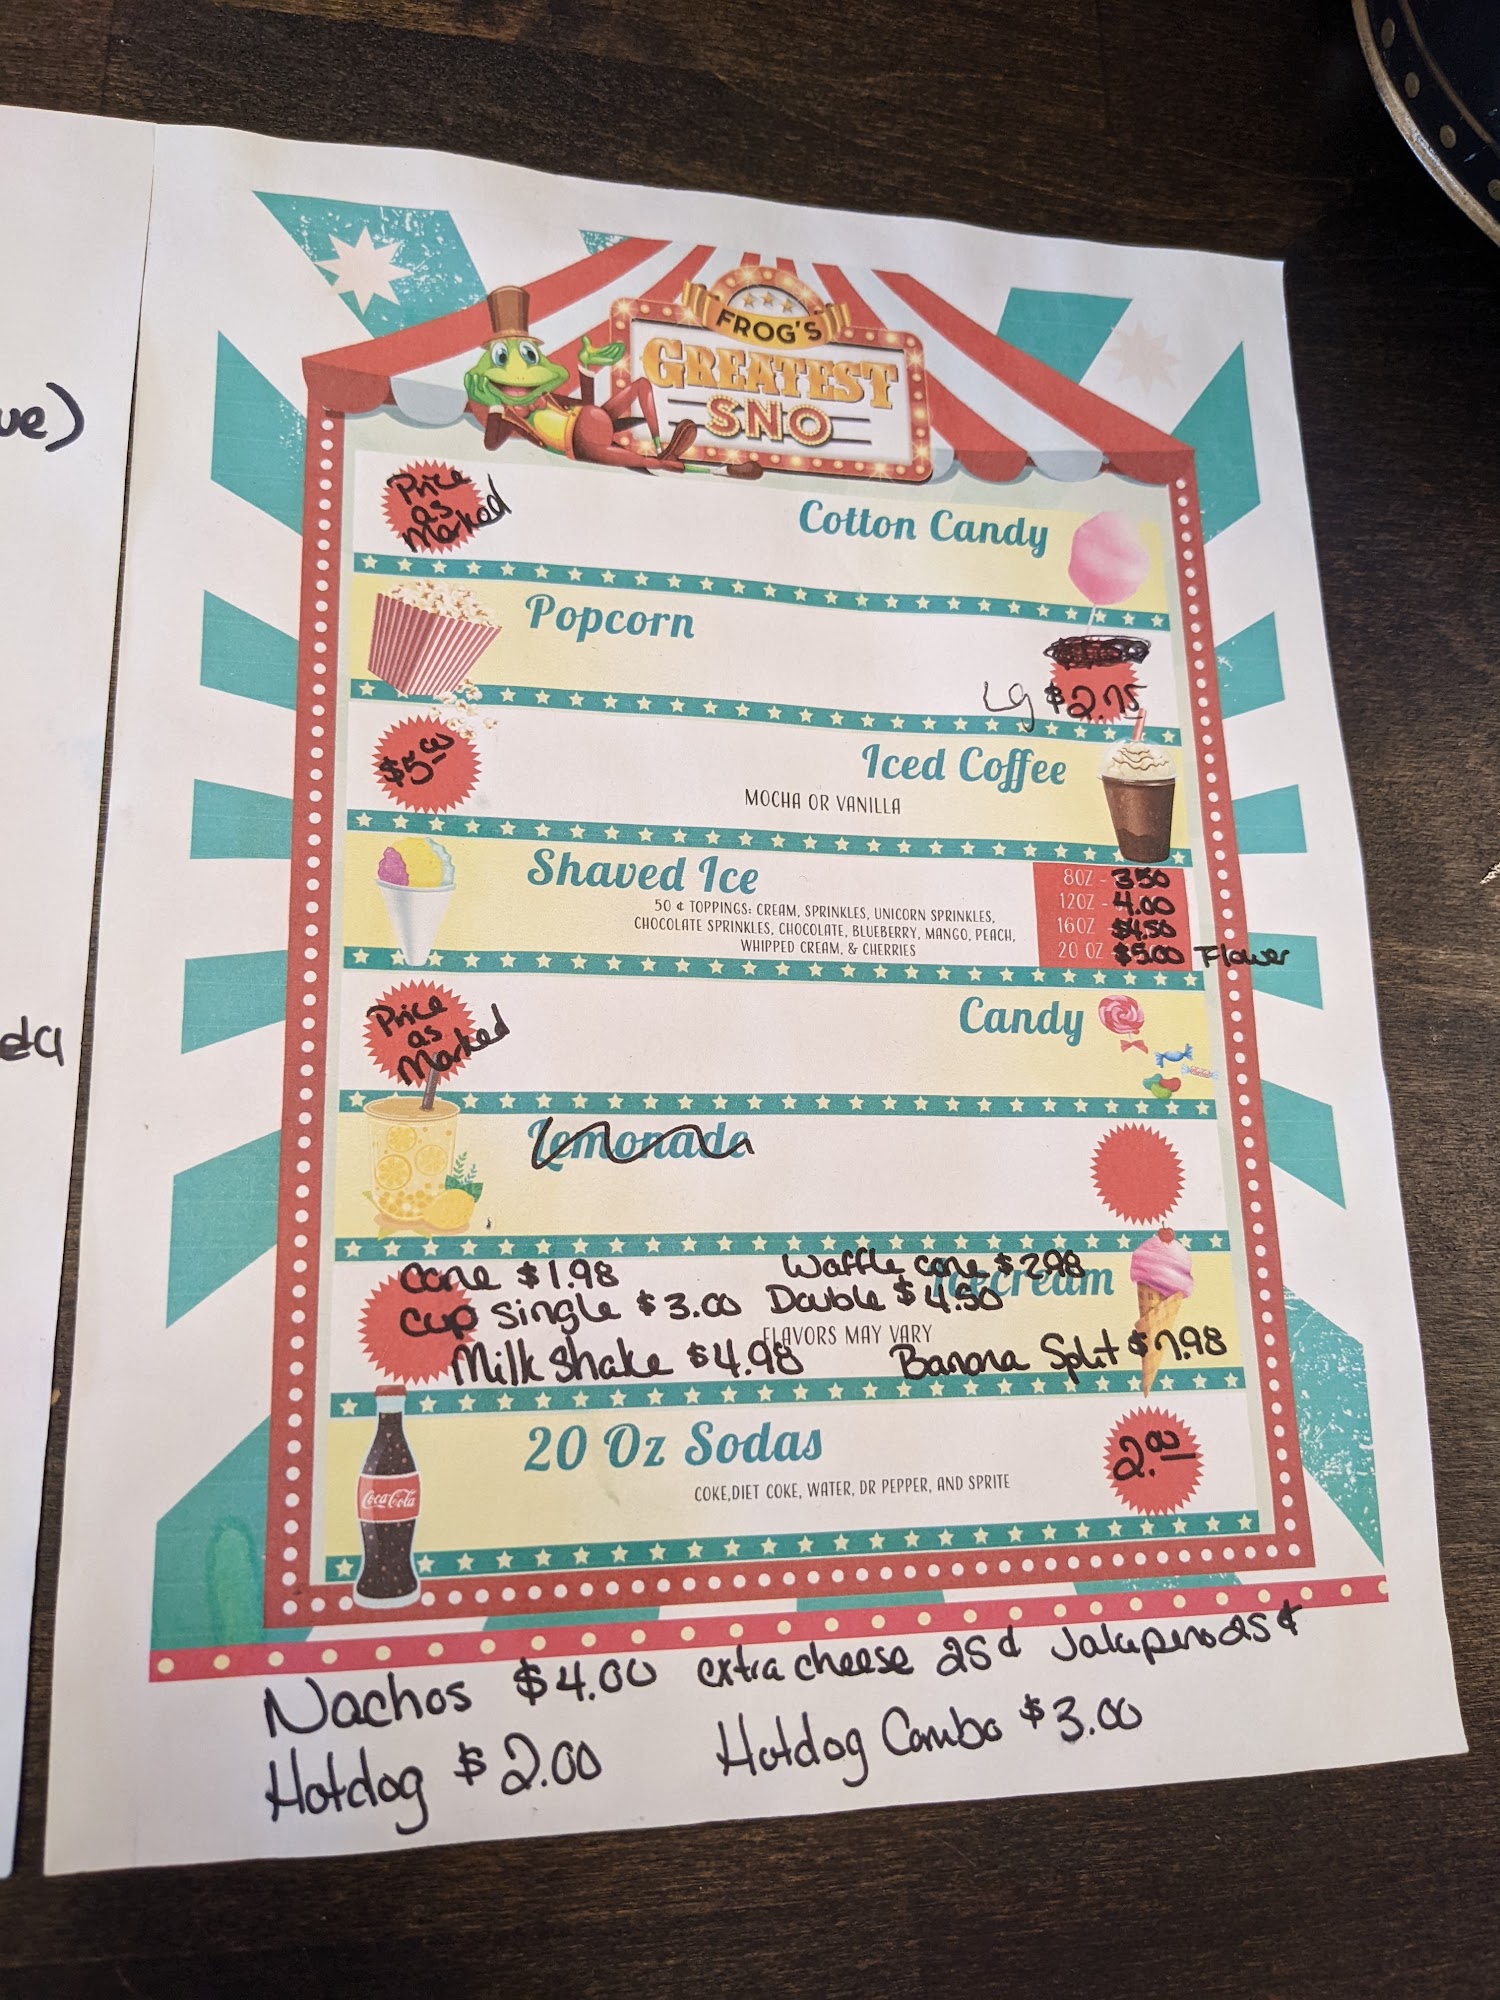 ue)
FROG'S
GREATEST
SNO
Price
as
Marked
Cotton Candy
Popcorn
Lg $2.75
$5.00
Iced Coffee
MOCHA OR VANILLA
Shaved Ice
50 ¢ TOPPINGS: CREAM, SPRINKLES, UNICORN SPRINKLES,
CHOCOLATE SPRINKLES, CHOCOLATE, BLUEBERRY, MANGO, PEACH,
WHIPPED CREAM, & CHERRIES
8OZ - 3.50
12OZ - 4.00
16OZ - $4.50
20 OZ $5.00 Flower
Price
as
Marked
Candy
Lemonade
Cone $1.98 Waffle cone $2.98
Icecream
Cup single $3.00 Double $4.50
FLAVORS MAY VARY
Milk Shake $4.98 Banana Split $7.98
20 Oz Sodas
2.00
COKE,DIET COKE, WATER, DR PEPPER, AND SPRITE
Coca-Cola
Nachos $4.00 extra cheese 25¢ Jalapeno 25¢
Hotdog $2.00 Hotdog Combo $3.00